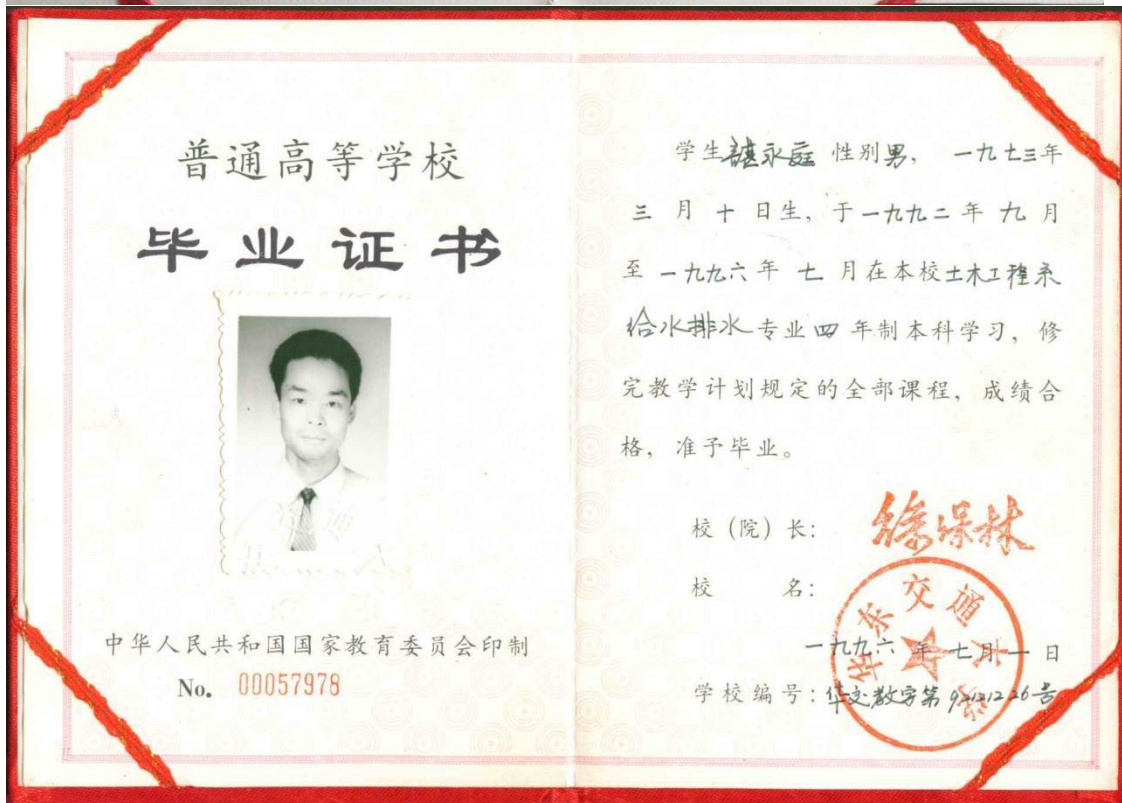 普通高等学校
毕业证书
中华人民共和国国家教育委员会印制
No. 00057978
学生谌永庭 性别男, 一九七三年
三月十日生, 于一九九二年九月
至一九九六年七月在本校土木工程系
给水排水专业四年制本科学习, 修
完教学计划规定的全部课程, 成绩合
格, 准予毕业。
校(院)长: 徐保林
校 名:
华东交通大学
一九九六年七月一日
学校编号: 华交教字第 号